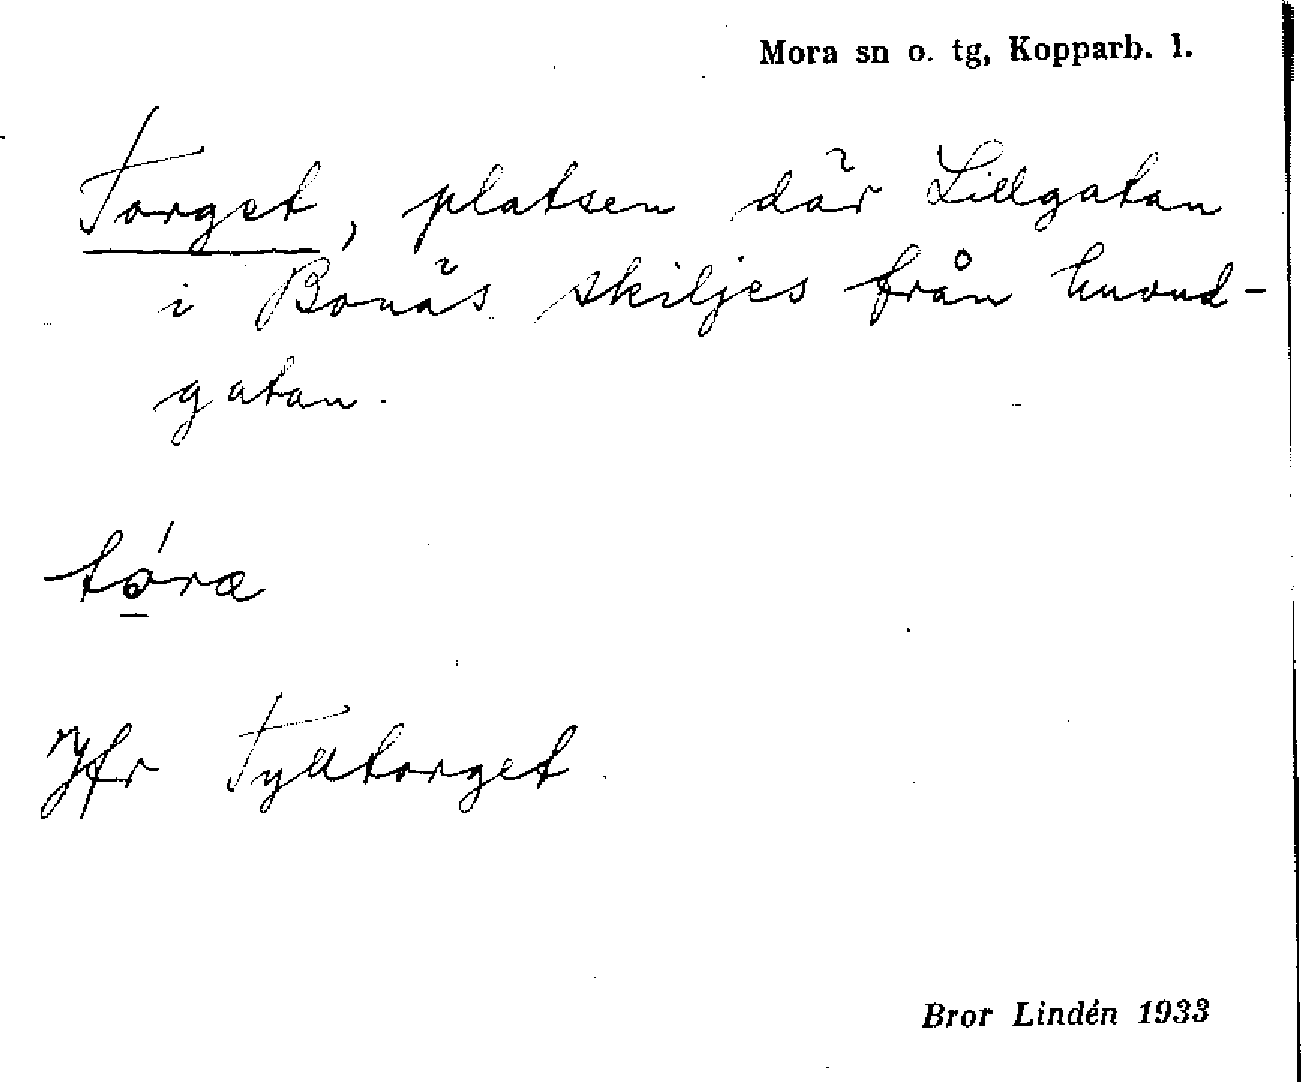 Mora sn o. tg, Kopparb. l.
Torget, platsen där Lillgatan
i Bonäs skiljes från huvud-
gatan.
tó̲ræ
Jfr Tylltorget.
Bror Lindén 1933